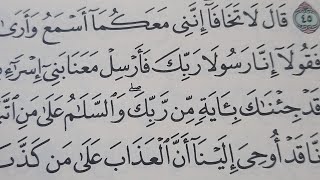 ٤٥ قَالَ لَا تَخَافَآ إِنَّنِى مَعَكُمَآ أَسْمَعُ وَأَرَىٰ
فَقُولَآ إِنَّا رَسُولَا رَبِّكَ فَأَرْسِلْ مَعَنَا بَنِىٓ إِسْرَٰٓءِ
قَدْ جِئْنَـٰكَ بِـَٔايَةٍ مِّن رَّبِّكَ ۖ وَٱلسَّلَـٰمُ عَلَىٰ مَنِ ٱتَّ
نَّا قَدْ أُوحِىَ إِلَيْنَآ أَنَّ ٱلْعَذَابَ عَلَىٰ مَن كَذَّبَ